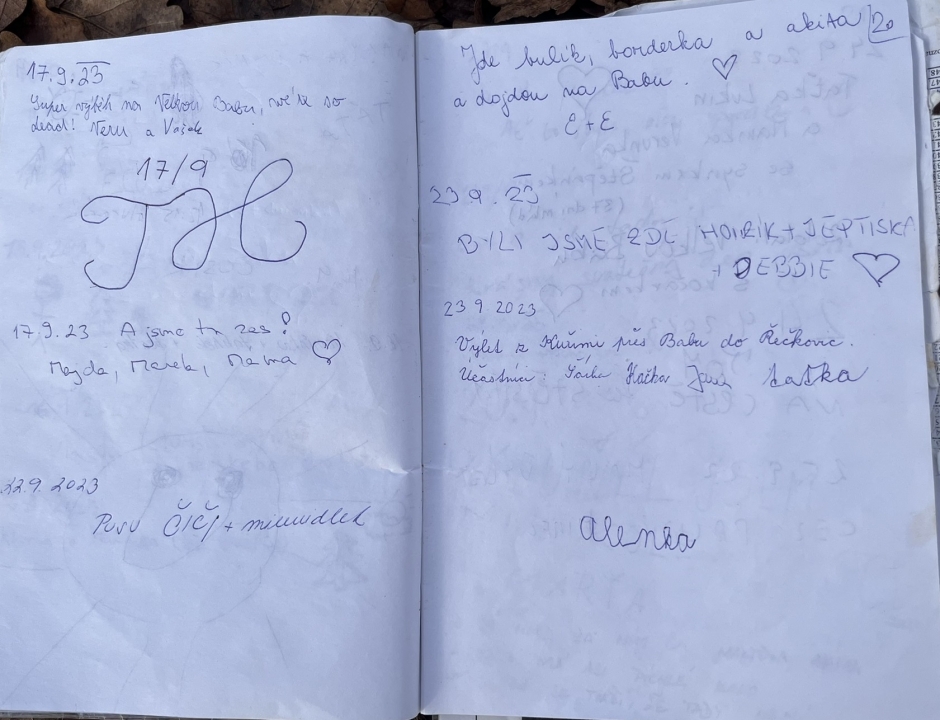 17.9.23
Super výběh na Velkou Babu, we're so
dead! Veru a Vojta
17/9
TH
17.9.23 A jsme tu zas!
Magda, Marek, Mamma ♡
22.9. 2023
ČIČI +
20
Jde bulík, borderka a akita
a dojdou na Babu. ♡
E+E
23 9. 23
BYLI JSME ZDE HONZIK + JEPTIŠKA
+ DEBBIE ♡
23 9 2023
Výlet z Kuřimi přes Babu do Řečkovic.
Účastníci: Šárka Kačka Jana taťka
alenka